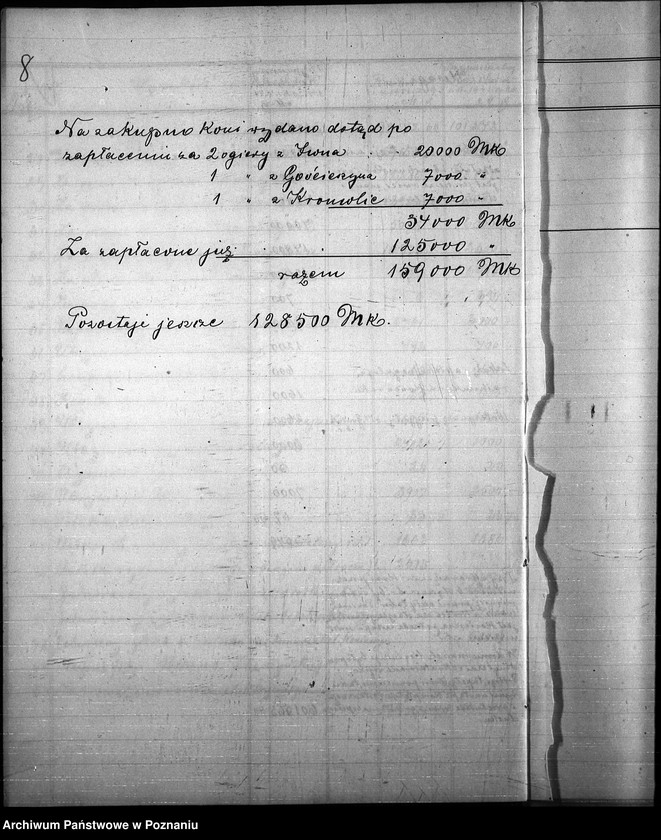 8
Na zakupno koni wydano dotąd po
zapłaceniu za 2 ogiery z Iwna . 20000 Mk
1 " z Gościeszyna 7000 "
1 " z Kromolic 7000 "
34000 Mk
Za zapłacone już . . 125000 "
razem 159000 Mk
Pozostaje jeszcze 128500 Mk.
Archiwum Państwowe w Poznaniu